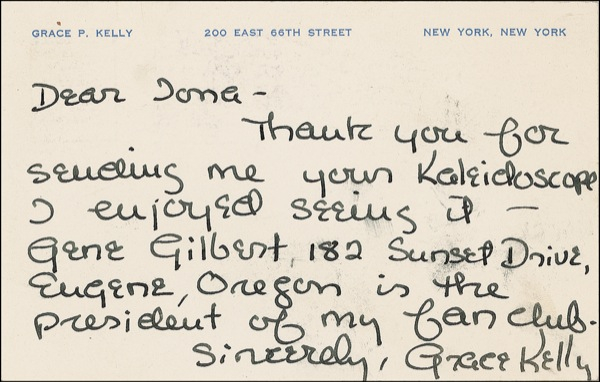 GRACE P. KELLY 200 EAST 66TH STREET NEW YORK, NEW YORK
Dear Iona -
Thank you for
sending me your Kaleidoscope
I enjoyed seeing it —
Gene Gilbert, 182 Sunset Drive,
Eugene, Oregon is the
president of my fan club.
Sincerely, Grace Kelly